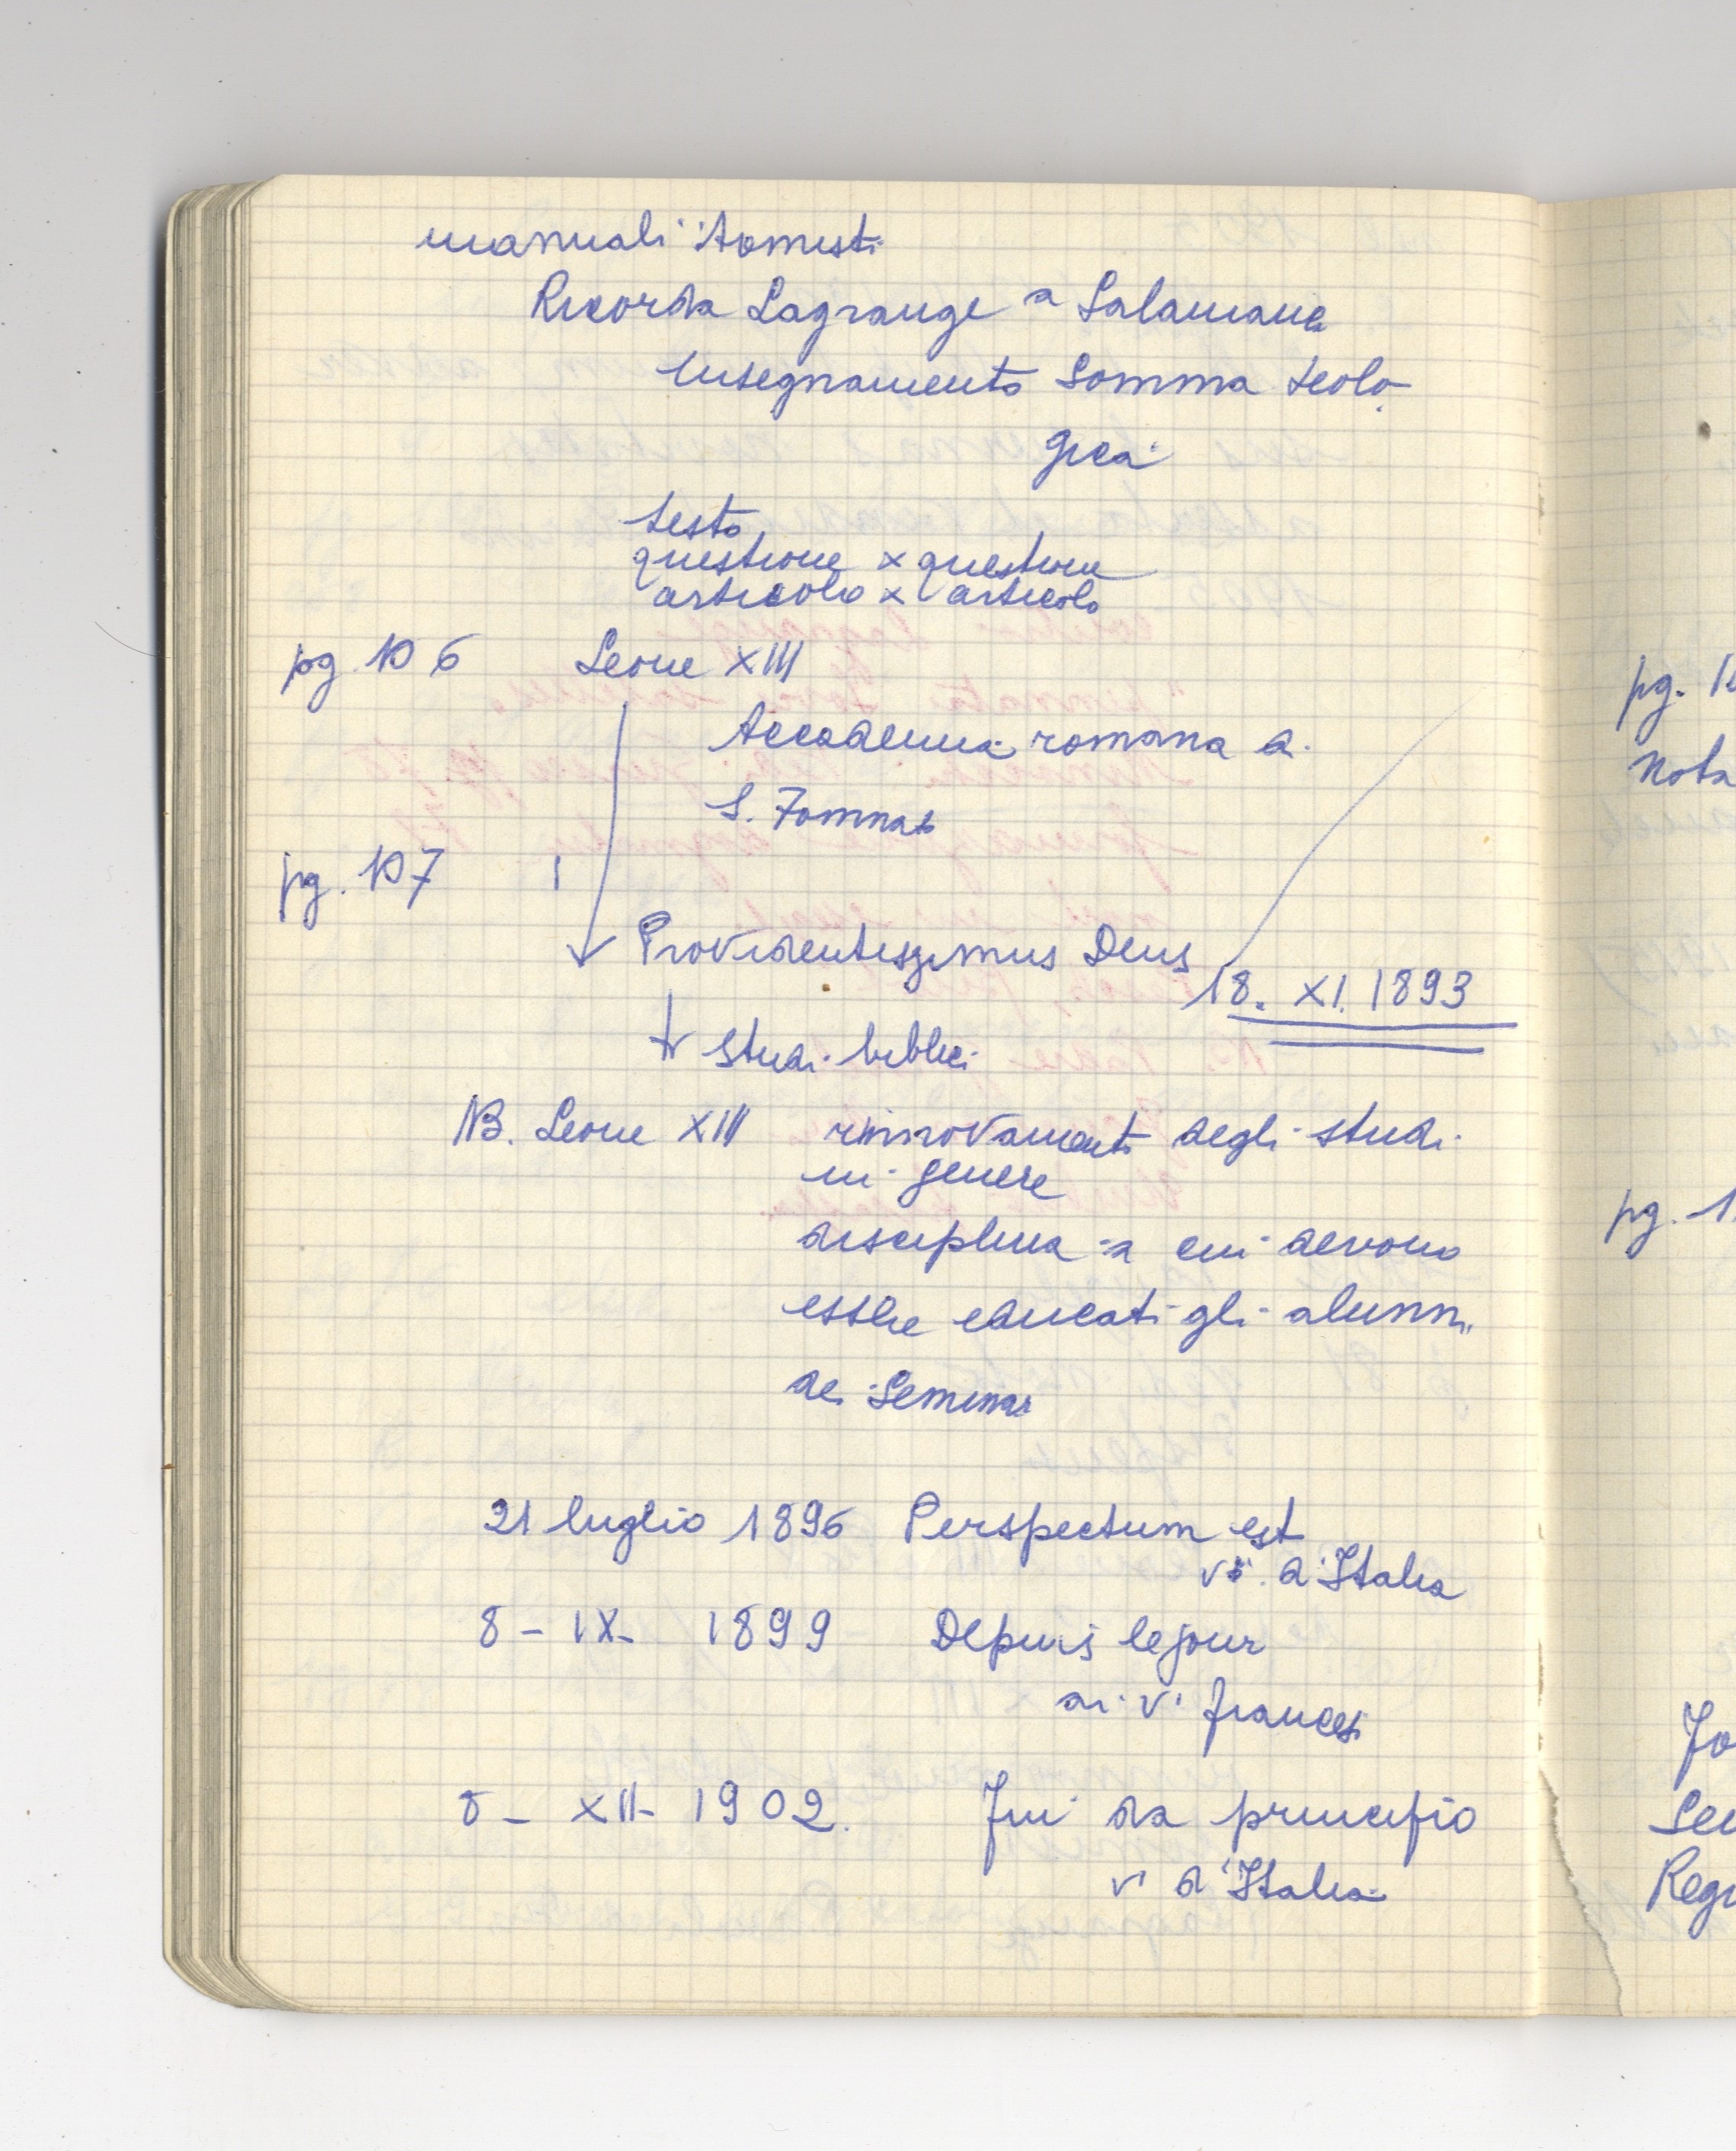 manuali tomisti
Ricorda Lagrange a Salamanca
Insegnamento Somma teolo-
gica
testo
questione x questione
articolo x articolo
pg. 106 Leone XIII
Accademia romana di
S. Tommaso
pg. 107
Providentissimus Deus
18. XI. 1893
studi biblici
NB. Leone XIII rinnovamento degli studi
in genere
disciplina a cui devono
essere educati gli alunni
dei Seminari
21 luglio 1896 Perspectum est
vi d'Italia
8 - IX - 1899 Depuis le jour
ai vi francesi
8 - XII - 1902. Fin da principio
vi d'Italia
pg. 1
nota
pg. 1